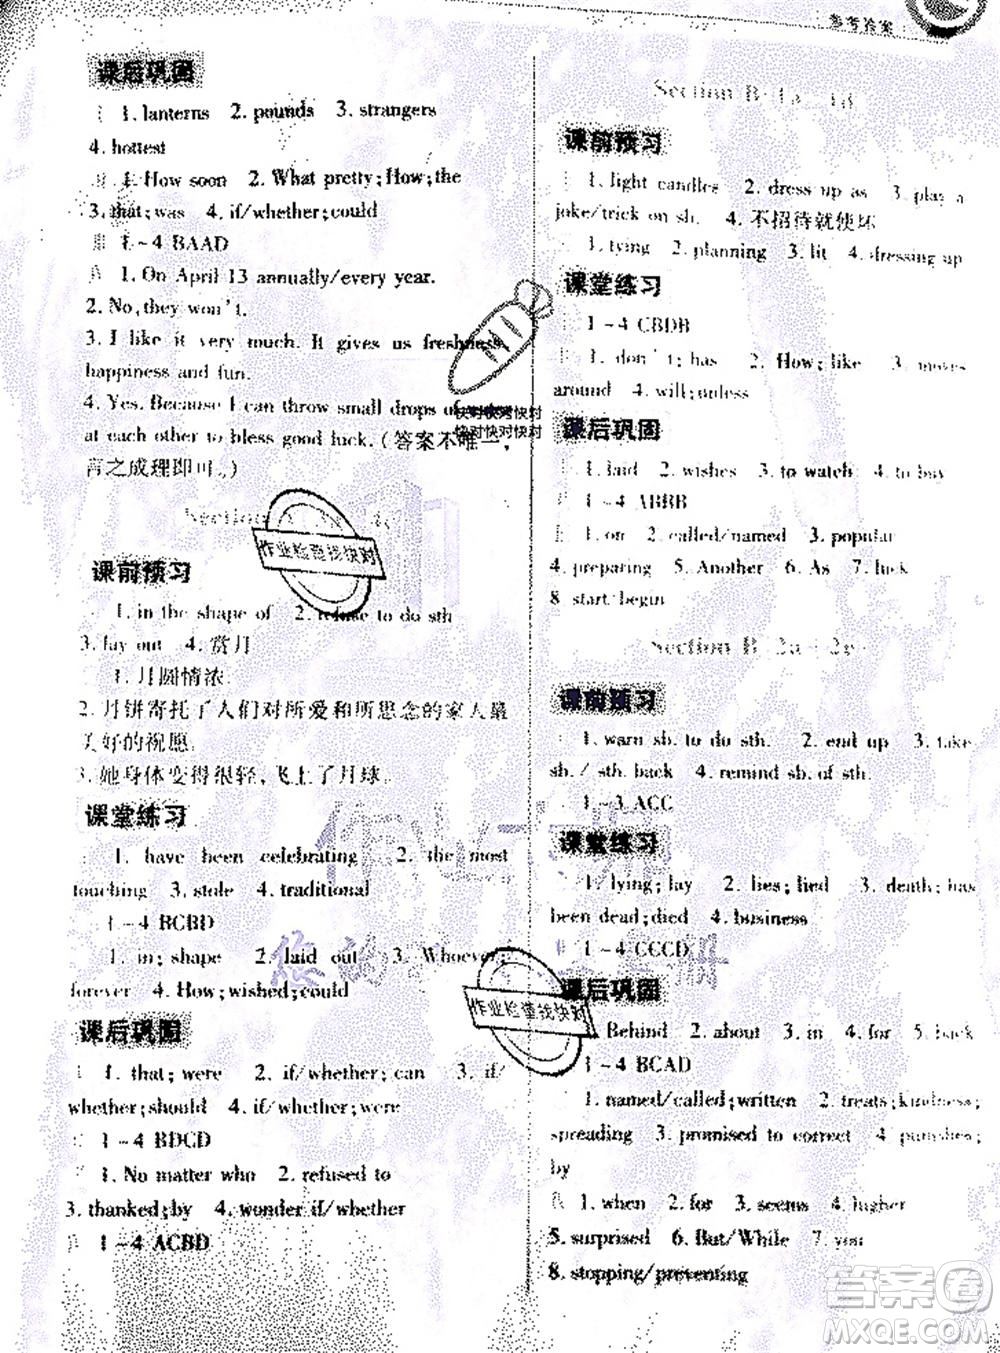 参考答案
课后巩固
1. lanterns 2. pounds 3. strangers
4. hottest
1. How soon 2. What pretty;How;the
3. that;was 4. if/whether;could
1~4 BAAD
1. On April 13 annually/every year.
2. No, they won't.
3. I like it very much. It gives us freshness,
happiness and fun.
4. Yes. Because I can throw small drops of
at each other to bless good luck. (答案不唯一,
言之成理即可。)
Section A
课前预习
1. in the shape of 2. refuse to do sth.
3. lay out 4. 赏月
1. 月圆情浓。
2. 月饼寄托了人们对所爱和所思念的家人最
美好的祝愿。
3. 她身体变得很轻,飞上了月球。
课堂练习
1. have been celebrating 2. the most
touching 3. stole 4. traditional
1~4 BCBD
1. in; shape 2. laid out 3. Whoever;
forever 4. How;wished;could
课后巩固
1. that; were 2. if/whether; can 3. if/
whether;should 4. if/whether;were
1~4 BDCD
1. No matter who 2. refused to
3. thanked;by 4. wonder if/whether
1~4 ACBD
Section B 1a~1d
课前预习
1. light candles 2. dress up as 3. play a
joke/trick on sb. 4. 不招待就使坏
1. tying 2. planning 3. lit 4. dressing up
课堂练习
1~4 CBDB
1. don't; has 2. How;like 3. moves
around 4. will;unless
课后巩固
1. laid 2. wishes 3. to watch 4. to buy
1~4 ABBB
1. on 2. called/named 3. popular
4. preparing 5. Another 6. As 7. luck
8. start/begin
Section B 2a~2e
课前预习
1. warn sb. to do sth. 2. end up 3. take
sb./sth. back 4. remind sb. of sth.
1~3 ACC
课堂练习
1. lying; lay 2. lies; lied 3. death; has
been dead;died 4. business
1~4 CCCD
课后巩固
Behind 2. about 3. in 4. for 5. back
1~4 BCAD
1. named/called;written 2. treats;kindness;
spreading 3. promised to correct 4. punished;
by
1. when 2. for 3. seems 4. higher
5. surprised 6. But/While 7. you
8. stopping/preventing
快对快对快对
快对快对快对
作业检查找快对
作业检查找快对
答案圈
MXQE.COM